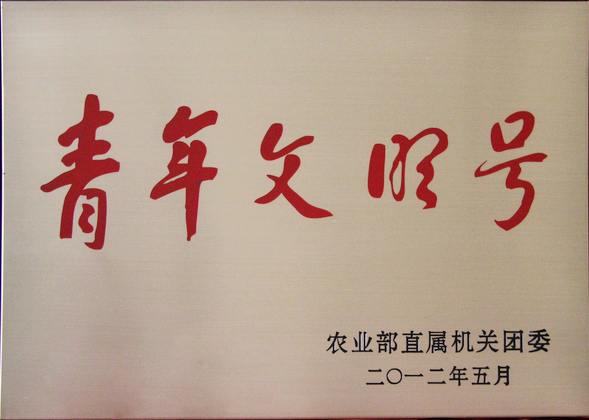 青年文明号
农业部直属机关团委
二〇一二年五月